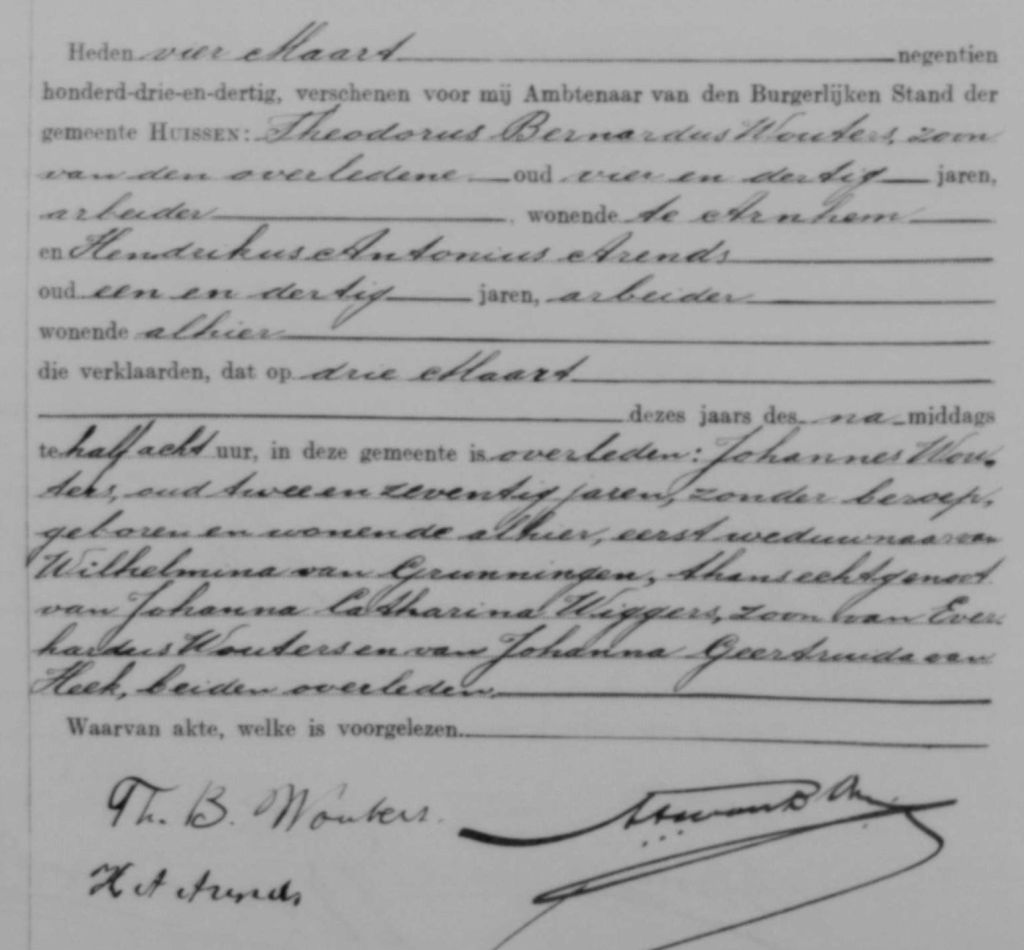 Heden vier Maart negentien
honderd-drie-en-dertig, verschenen voor mij Ambtenaar van den Burgerlijken Stand der
gemeente HUISSEN: Theodorus Bernardus Wouters, zoon
van den overledene oud vier en dertig jaren,
arbeider, wonende te Arnhem
en Hendrikus Antonius Arends
oud een en dertig jaren, arbeider
wonende alhier
die verklaarden, dat op drie Maart
dezes jaars des na middags
te half acht uur, in deze gemeente is overleden: Johannes Wou-
ters, oud twee en zeventig jaren, zonder beroep,
geboren en wonende alhier, eerst weduwnaar van
Wilhelmina van Grunningen, thans echtgenoot
van Johanna Catharina Wiggers, zoon van Ever-
hardus Wouters en van Johanna Geertruida van
Heek, beiden overleden.
Waarvan akte, welke is voorgelezen.
Th. B. Wouters.
H A Arends